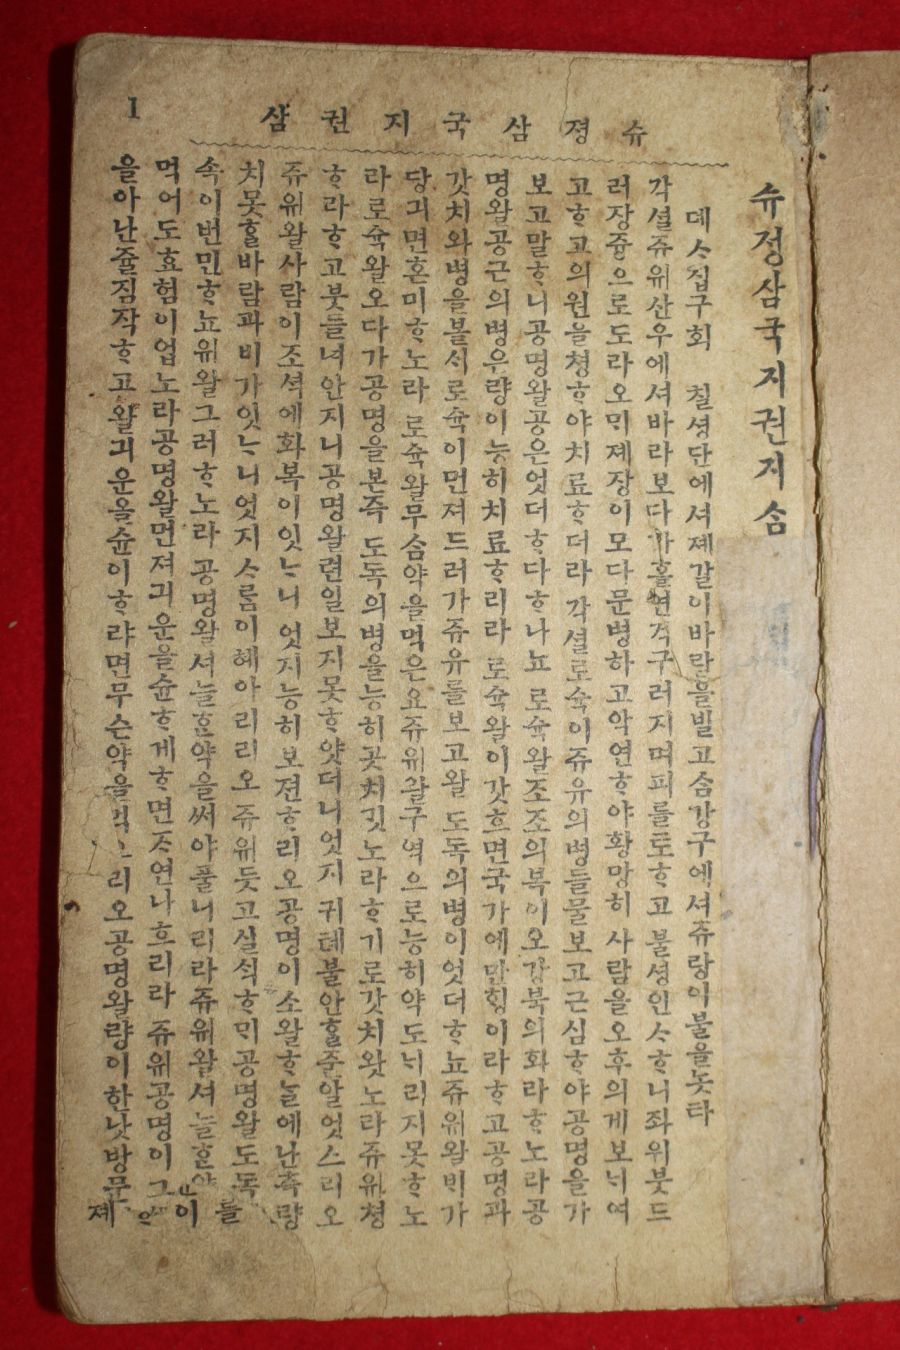 슈졍삼국지권삼
1
슈정삼국지권지숨
뎨ᄉ십구회 칠셩단에셔졔갈이바람을빌고숨강구에셔쥬랑이불을놋타
각셜쥬위산우에셔바라보다가홀연것구러지며피를토ᄒ고불셩인ᄉᄒ니좌위붓드
러장즁으로도라오ᄆᆡ졔장이모다문병하고악연ᄒ야황망히사람을오후의게보ᄂᆡ여
고ᄒ고의원을쳥ᄒ야치료ᄒ더라 각셜로슉이쥬유의병들물보고근심ᄒ야공명을가
보고말ᄒ니공명왈공은엇더ᄒ다ᄒ나뇨 로슉왈조조의복이오강북의화라ᄒ노라공
명왈공근의병우량이능히치료ᄒ리라 로슉왈이갓흐면국가에만ᄒᆡᆼ이라ᄒ고공명과
갓치와병을볼ᄉᆡ로슉이먼져드러가쥬유를보고왈도독의병이엇더ᄒ뇨쥬위왈ᄇᆡ가
당긔면혼미ᄒ노라 로슉왈무숨약을먹은요쥬위왈구역으로능히약도ᄂᆡ리지못ᄒ노
라로슉왈오다가공명을본즉 도독의병을능히곳치깃노라ᄒ기로갓치왓노라쥬위쳥
ᄒ라ᄒ고붓들녀안지니공명왈련일보지못ᄒ얏더니엇지귀톄불안ᄒᆞᆯ줄알엇스리오
쥬위왈사람이조셕에화복이잇ᄂ니 엇지능히보젼ᄒ리오공명이소왈ᄒᄂᆞᆯ에난측량
치못ᄒᆞᆯ바람과비가잇ᄂ니엇지ᄉᄅᆞᆷ이혜아리리오 쥬위듯고실ᄉᆡᆨᄒᄆᆡ공명왈도독
속이번민ᄒ뇨위왈그러ᄒ노라 공명왈셔늘ᄒᆞᆫ약을써야풀니리라쥬위왈셔늘ᄒᆞᆫ약들
먹어도효험이업노라공명왈먼져긔운을슌ᄒ게ᄒ면ᄌ연나흐리라 쥬위공명이그이
을아난쥴짐작ᄒ고왈긔운을슌이ᄒ랴면무슨약을 리오공명왈량이한낫방문 은
졔